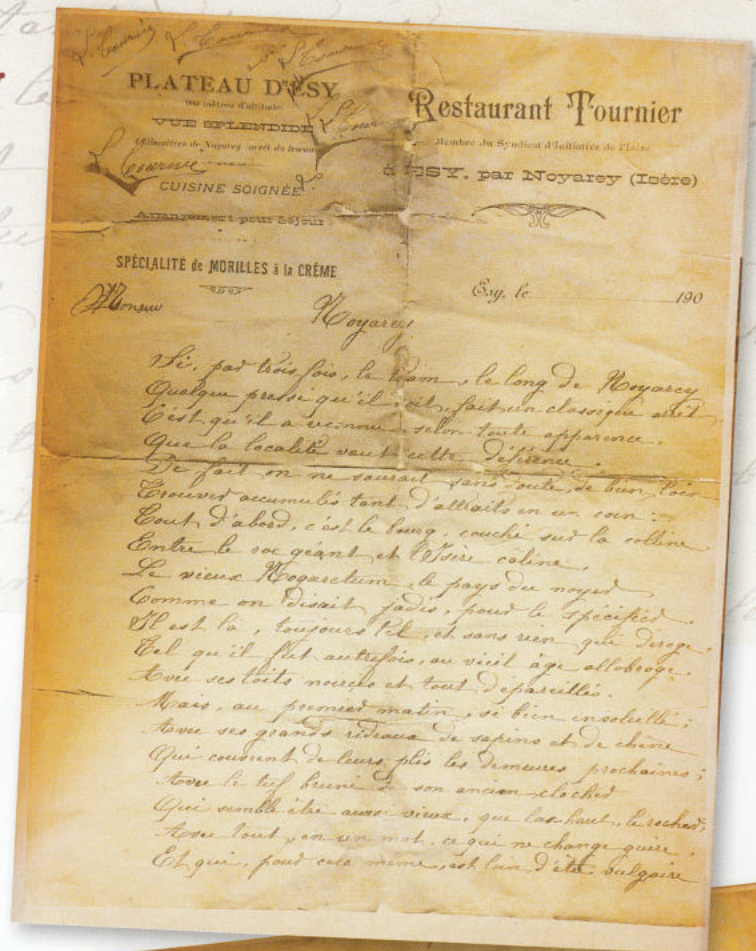 L. Tournier
L. Tournier
L. Tournier
PLATEAU D'ESY
900 mètres d'altitude
VUE SPLENDIDE
L. Tournier
à kilomètres de Noyarey arrêt du tramway
L. Tournier
CUISINE SOIGNÉE
Arrangement pour Séjour
SPÉCIALITÉ de MORILLES à la CRÈME
Restaurant Tournier
Membre du Syndicat d'Initiative de l'Isère
à ESY, par Noyarey (Isère)
Esy, le 190
Monsieur
Noyarey
Si, par trois fois, le tram, le long de Noyarey
Quelque pressé qu'il soit, fait un classique arrêt,
C'est qu'il a reconnu, selon toute apparence,
Que la localité vaut cette déférence.
De fait on ne saurait sans doute, de bien loin
Trouver accumulés tant d'attraits en un coin :
Tout d'abord, c'est le bourg, couché sur la colline
Entre le roc géant et l'Isère câline,
Le vieux Nogaretum, le pays du noyer
Comme on disait jadis, pour le spécifier.
Il est là, toujours tel, et sans rien qui déroge,
Tel qu'il fut autrefois, au vieil âge allobroge.
Avec ses toits noircis et tout dépareillés.
Mais, au premier matin, si bien ensoleillé ;
Avec ses grands rideaux de sapins et de chêne
Qui couvrent de leurs plis les demeures prochaines ;
Avec le tuf bruni de son ancien clocher
Qui semble être aussi vieux, que las haut, le rocher,
Avec tout, en un mot, ce qui ne change guère,
Et qui, pour cela même, est loin d'être vulgaire